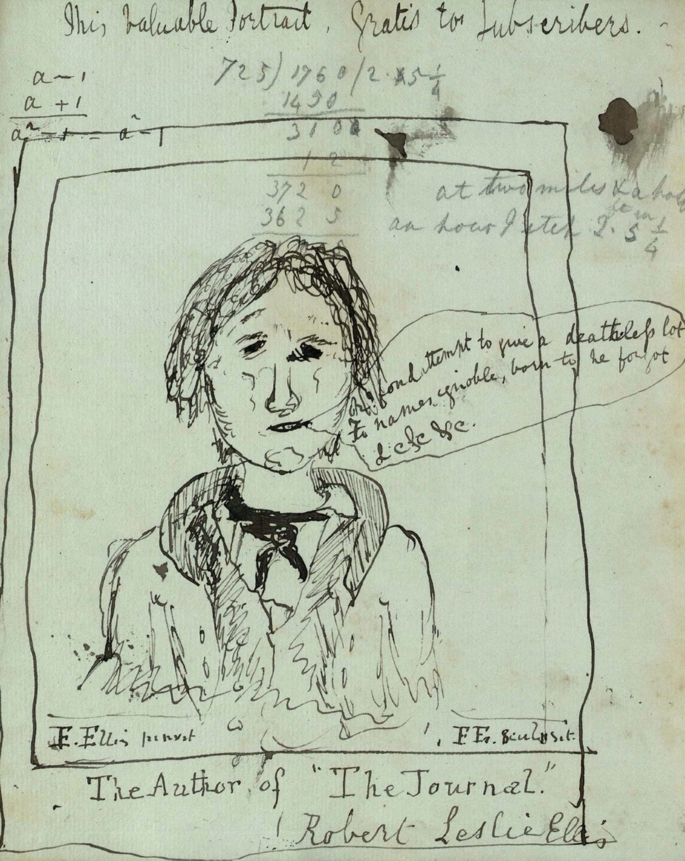 This Valuable Portrait, Gratis to Subscribers.
a - 1
a + 1
a² - 1 = a² - 1
725) 1760 / 2.
1450
310
12
372 0
362 5
at two miles & a half
an hour I step 2.5 1/4
fond attempt to give a deathless lot
To names ignoble, born to be forgot
&c &c &c.
F. Ellis pinxt
FEs. Sculpsit.
The Author of "The Journal."
Robert Leslie Ellis